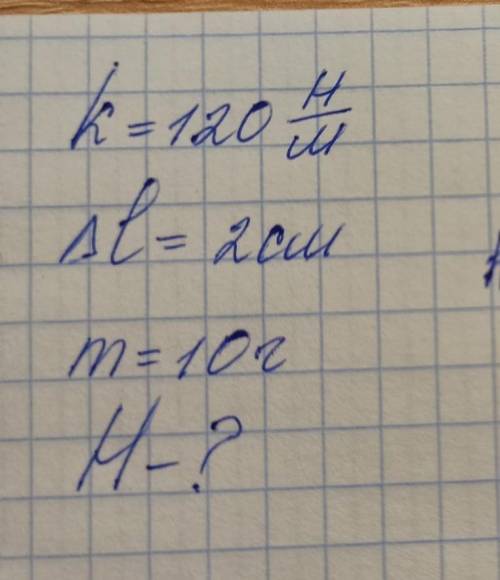 k = 120 Н/м
Δl = 2 см
m = 10 г
H - ?